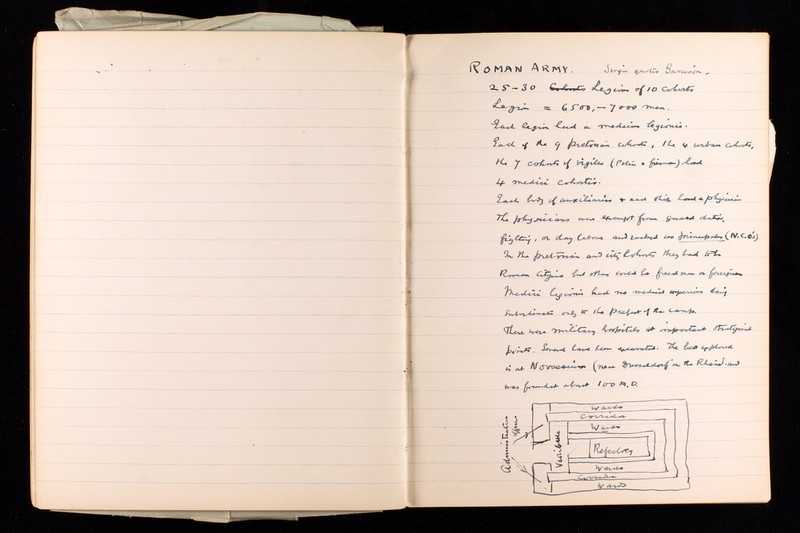 ROMAN ARMY.
25-30 Cohorts Legions of 10 Cohorts
Legion = 6500,-7000 men.
Each legion had a medicus legionis.
Each of the 9 pretorian cohorts, the 4 urban cohorts,
the 7 cohorts of vigiles (Police & firemen) had
4 medici cohortis.
Each body of auxiliaries & each ship had a physician
The physicians were exempt from guard duties,
fighting, or day labour and ranked as principales (N.C.O's)
In the pretorian and city Cohorts they had to be
Roman citizens but others could be freedmen or foreigners
Medici legionis had no medical superiors being
subordinate only to the Prefect of the camp.
There were military hospitals at important strategical
points. Several have been excavated. The best explored
is at Novaesium (near Dusseldorf on the Rhine) and
was founded about 100 A.D.
Wards
Corridor
Wards
Administrative
offices
Vestibule
Refectory
Wards
Corridor
Wards